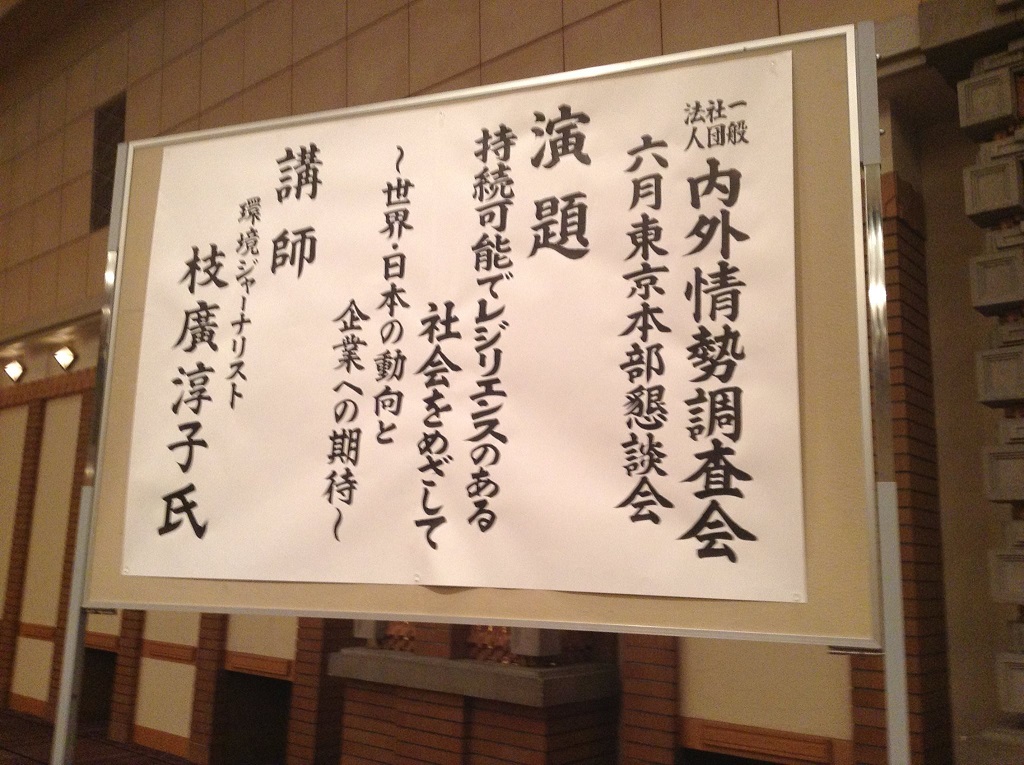 一般社団法人 内外情勢調査会
六月東京本部懇談会
演題
持続可能でレジリエンスのある
社会をめざして
～世界・日本の動向と
企業への期待～
講師
環境ジャーナリスト
枝廣淳子氏